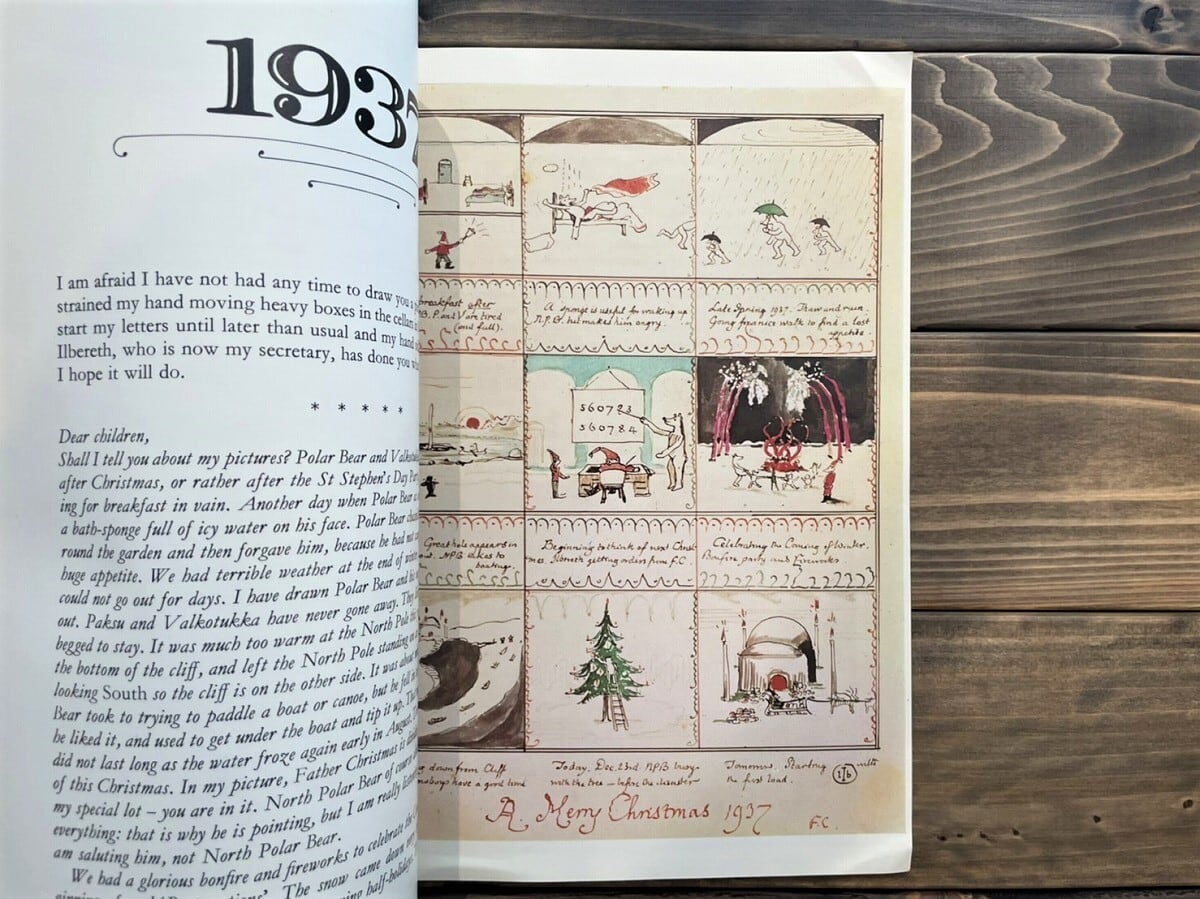 1937
I am afraid I have not had any time to draw you a
strained my hand moving heavy boxes in the cellar
start my letters until later than usual and my hand
Ilbereth, who is now my secretary, has done you
I hope it will do.
* * * * *
Dear children,
Shall I tell you about my pictures? Polar Bear and
after Christmas, or rather after the St Stephen's Day
ing for breakfast in vain. Another day when Polar Bear
a bath-sponge full of icy water on his face. Polar Bear
round the garden and then forgave him, because he had not
huge appetite. We had terrible weather at the end of
could not go out for days. I have drawn Polar Bear and his
out. Paksu and Valkotukka have never gone away. They
begged to stay. It was much too warm at the North Pole
the bottom of the cliff, and left the North Pole standing on
looking South so the cliff is on the other side. It was about
Bear took to trying to paddle a boat or canoe, but he fell in
he liked it, and used to get under the boat and tip it up.
did not last long as the water froze again early in August.
of this Christmas. In my picture, Father Christmas is
my special lot – you are in it. North Polar Bear of course
everything: that is why he is pointing, but I am really
am saluting him, not North Polar Bear.
We had a glorious bonfire and fireworks to celebrate the
The snow came down very
half-holidays.
breakfast after
P. and V are tired
(and full).
A sponge is useful for waking up
N.P.B. but makes him angry.
Late Spring 1937. Thaw and rain.
Going for a nice walk to find a lost
appetite.
560783
560784
Great hole appears in
NPB takes to
boating.
Beginning to think of next Christ-
mas. Ilbereth getting orders from F.C
Celebrating the Coming of Winter.
Bonfire party and Fireworks
down from Cliff
have a good time
Today, Dec. 23rd. NPB busy
with the tree – before the disaster
Tomorrow. Starting with
the first load.
A Merry Christmas 1937
F.C.